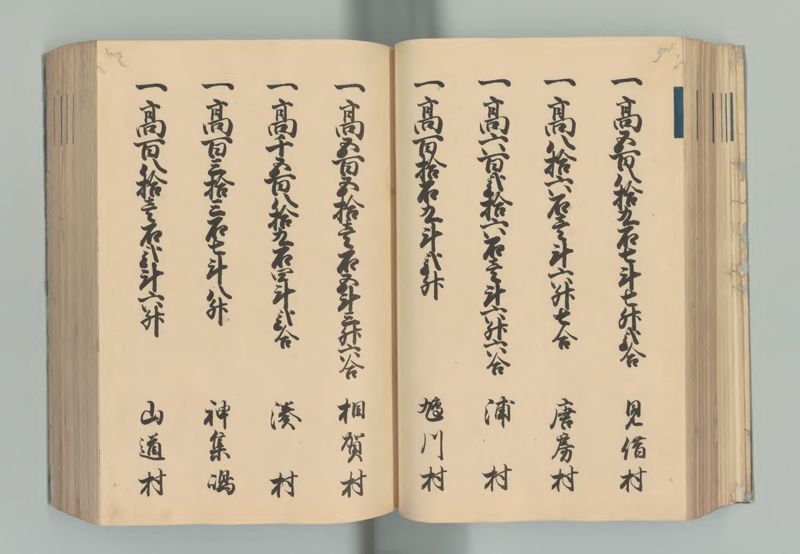 一高五百八拾九石七斗七升弐合 見借村
一高八拾六石壱斗六升七合 唐房村
一高六百弐拾六石壱斗六升六合 浦村
一高百拾石九斗弐升 鳩川村
一高五百五拾壱石五斗三升六合 相賀村
一高千五百八拾九石四斗弐合 湊村
一高百三拾三石七斗八升 神集嶋
一高百八拾壱石弐斗六升 山道村